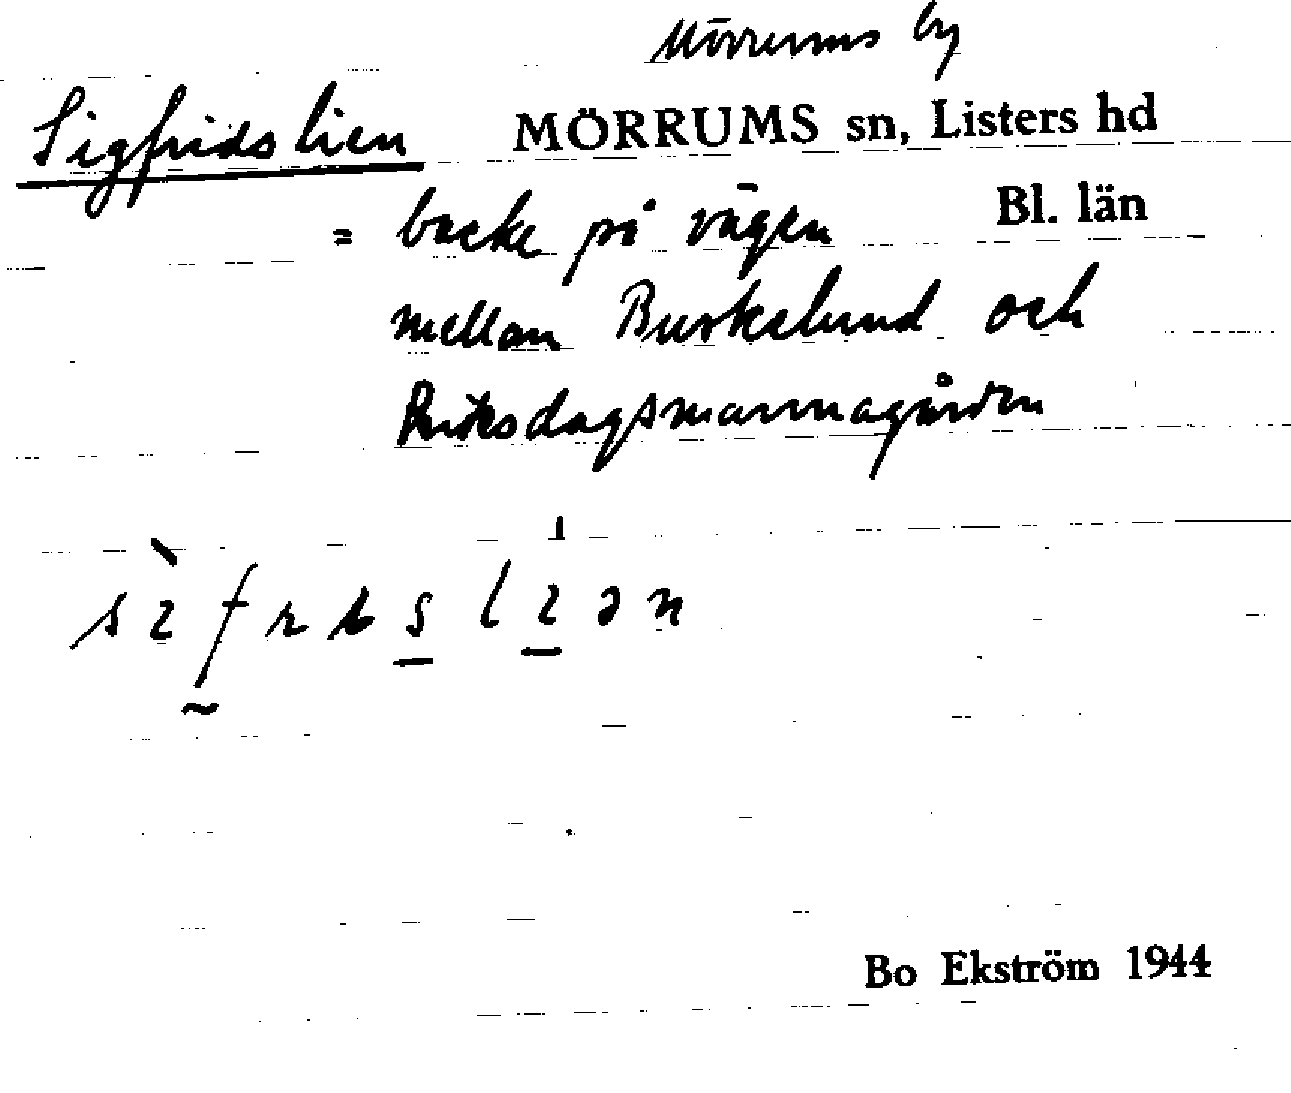 Mörrums by
Sigfridslien MÖRRUMS sn, Listers hd
= backe på vägen Bl. län
mellan Burkelund och
Riksdagsmannagården
Bo Ekström 1944